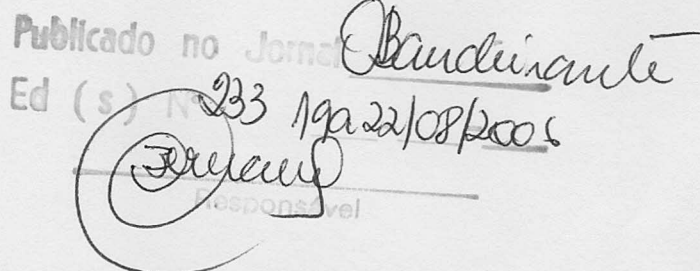 Publicado no Jornal O Bandeirante
Ed (s) Nº 233 19 a 22/08/2006
Responsável